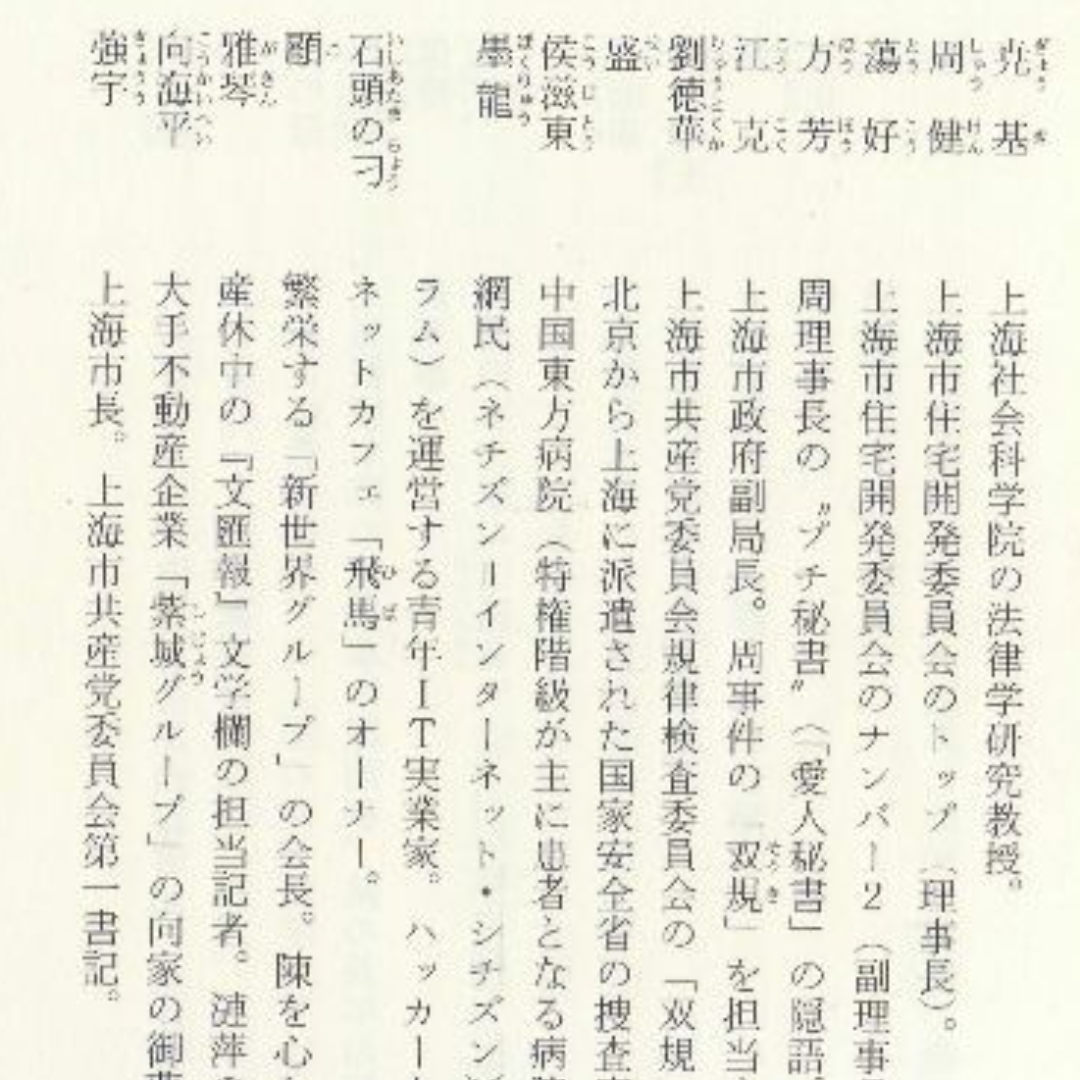 尭基 上海社会科学院の法律学研究教授。
周健 上海市住宅開発委員会のトップ(理事長)。
蕩好 上海市住宅開発委員会のナンバー2(副理事
方芳 周理事長の〝プチ秘書〟(「愛人秘書」の隠語。
江克 上海市政府副局長。周事件の「双規」を担当
劉徳華 上海市共産党委員会規律検査委員会の「双規
盛 北京から上海に派遣された国家安全省の捜査
侯滋東 中国東方病院(特権階級が主に患者となる病
墨龍 網民(ネチズン=インターネット・シチズン
ラム)を運営する青年IT実業家。ハッカー
石頭の刁 ネットカフェ「飛馬」のオーナー。
顧 繁栄する「新世界グループ」の会長。陳を心
雅琴 産休中の『文匯報』文学欄の担当記者。漣萍
向海平 大手不動産企業「紫城グループ」の向家の御
強宇 上海市長。上海市共産党委員会第一書記。